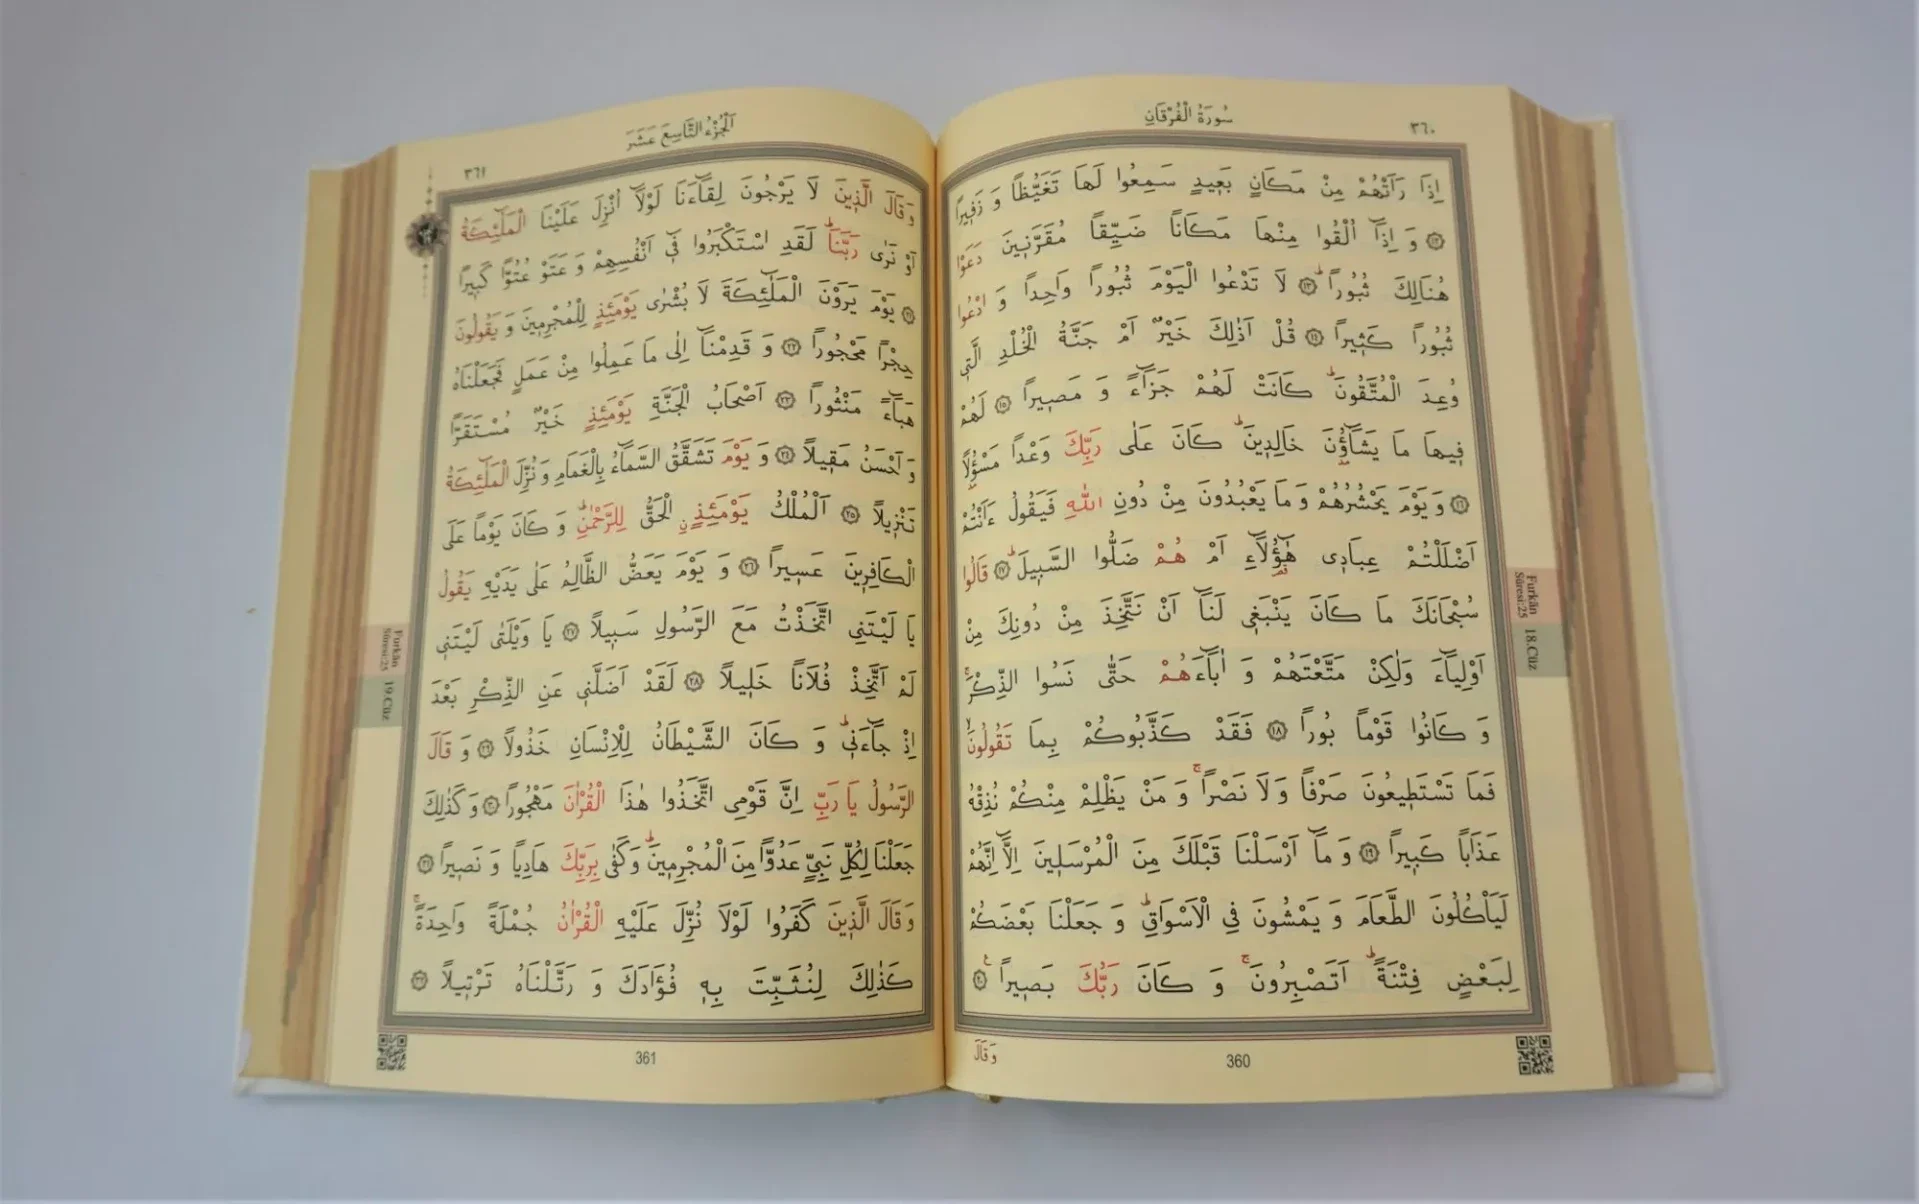 سُورَةُ الْفُرْقَانِ
٣٦٠
اِذَا رَاَتْهُمْ مِنْ مَكَانٍ بَعٖيدٍ سَمِعُوا لَهَا تَغَيُّظًا وَ زَفٖيرًا
﴿١٢﴾ وَ اِذَٓا اُلْقُوا مِنْهَا مَكَانًا ضَيِّقًا مُقَرَّنٖينَ دَعَوْا
هُنَالِكَ ثُبُورًاؕ ﴿١٣﴾ لَا تَدْعُوا الْيَوْمَ ثُبُورًا وَاحِدًا وَ ادْعُوا
ثُبُورًا كَثٖيرًا ﴿١٤﴾ قُلْ اَذٰلِكَ خَيْرٌ اَمْ جَنَّةُ الْخُلْدِ الَّتٖى
وُعِدَ الْمُتَّقُونَؕ كَانَتْ لَهُمْ جَزَٓاءً وَ مَصٖيرًا ﴿١٥﴾ لَهُمْ
فٖيهَا مَا يَشَٓاؤُ۫نَ خَالِدٖينَؕ كَانَ عَلٰى رَبِّكَ وَعْدًا مَسْؤُ۫لًا
﴿١٦﴾ وَ يَوْمَ يَحْشُرُهُمْ وَ مَا يَعْبُدُونَ مِنْ دُونِ اللّٰهِ فَيَقُولُ ءَاَنْتُمْ
اَضْلَلْتُمْ عِبَادٖى هٰٓؤُ۬لَٓاءِ اَمْ هُمْ ضَلُّوا السَّبٖيلَؕ ﴿١٧﴾ قَالُوا
سُبْحَانَكَ مَا كَانَ يَنْبَغٖى لَنَٓا اَنْ نَتَّخِذَ مِنْ دُونِكَ مِنْ
اَوْلِيَٓاءَ وَلٰكِنْ مَتَّعْتَهُمْ وَ اٰبَٓاءَهُمْ حَتّٰى نَسُوا الذِّكْرَۚ
وَ كَانُوا قَوْمًا بُورًا ﴿١٨﴾ فَقَدْ كَذَّبُوكُمْ بِمَا تَقُولُونَۙ
فَمَا تَسْتَطٖيعُونَ صَرْفًا وَ لَا نَصْرًاۚ وَ مَنْ يَظْلِمْ مِنْكُمْ نُذِقْهُ
عَذَابًا كَبٖيرًا ﴿١٩﴾ وَ مَٓا اَرْسَلْنَا قَبْلَكَ مِنَ الْمُرْسَلٖينَ اِلَّٓا اِنَّهُمْ
لَيَاْكُلُونَ الطَّعَامَ وَ يَمْشُونَ فِي الْاَسْوَاقِؕ وَ جَعَلْنَا بَعْضَكُمْ
لِبَعْضٍ فِتْنَةًؕ اَتَصْبِرُونَۚ وَ كَانَ رَبُّكَ بَصٖيرًاࣖ ﴿٢٠﴾
وَ قَالَ
360
Furkân
Sûresi:25
18.Cüz
اَلْجُزْءُ التَّاسِعَ عَشَرَ
٣٦١
وَ قَالَ الَّذٖينَ لَا يَرْجُونَ لِقَٓاءَنَا لَوْلَٓا اُنْزِلَ عَلَيْنَا الْمَلٰٓئِكَةُ
اَوْ نَرٰى رَبَّنَاؕ لَقَدِ اسْتَكْبَرُوا فٖٓى اَنْفُسِهِمْ وَ عَتَوْ عُتُوًّا كَبٖيرًا
﴿٢١﴾ يَوْمَ يَرَوْنَ الْمَلٰٓئِكَةَ لَا بُشْرٰى يَوْمَئِذٍ لِلْمُجْرِمٖينَ وَ يَقُولُونَ
حِجْرًا مَحْجُورًا ﴿٢٢﴾ وَ قَدِمْنَٓا اِلٰى مَا عَمِلُوا مِنْ عَمَلٍ فَجَعَلْنَاهُ
هَبَٓاءً مَنْثُورًا ﴿٢٣﴾ اَصْحَابُ الْجَنَّةِ يَوْمَئِذٍ خَيْرٌ مُسْتَقَرًّا
وَ اَحْسَنُ مَقٖيلًا ﴿٢٤﴾ وَ يَوْمَ تَشَقَّقُ السَّمَٓاءُ بِالْغَمَامِ وَ نُزِّلَ الْمَلٰٓئِكَةُ
تَنْزٖيلًا ﴿٢٥﴾ اَلْمُلْكُ يَوْمَئِذٍنِ الْحَقُّ لِلرَّحْمٰنِؕ وَ كَانَ يَوْمًا عَلَى
الْكَافِرٖينَ عَسٖيرًا ﴿٢٦﴾ وَ يَوْمَ يَعَضُّ الظَّالِمُ عَلٰى يَدَيْهِ يَقُولُ
يَا لَيْتَنِى اتَّخَذْتُ مَعَ الرَّسُولِ سَبٖيلًا ﴿٢٧﴾ يَا وَيْلَتٰى لَيْتَنٖى
لَمْ اَتَّخِذْ فُلَانًا خَلٖيلًا ﴿٢٨﴾ لَقَدْ اَضَلَّنٖى عَنِ الذِّكْرِ بَعْدَ
اِذْ جَٓاءَنٖىؕ وَ كَانَ الشَّيْطَانُ لِلْاِنْسَانِ خَذُولًا ﴿٢٩﴾ وَ قَالَ
الرَّسُولُ يَا رَبِّ اِنَّ قَوْمِى اتَّخَذُوا هٰذَا الْقُرْاٰنَ مَهْجُورًا ﴿٣٠﴾ وَ كَذٰلِكَ
جَعَلْنَا لِكُلِّ نَبِيٍّ عَدُوًّا مِنَ الْمُجْرِمٖينَؕ وَ كَفٰى بِرَبِّكَ هَادِيًا وَ نَصٖيرًا ﴿٣١﴾
وَ قَالَ الَّذٖينَ كَفَرُوا لَوْلَا نُزِّلَ عَلَيْهِ الْقُرْاٰنُ جُمْلَةً وَاحِدَةًۚ
كَذٰلِكَ لِنُثَبِّتَ بِهٖ فُؤَادَكَ وَ رَتَّلْنَاهُ تَرْتٖيلًا ﴿٣٢﴾
361
Furkân
Sûresi:25
19.Cüz